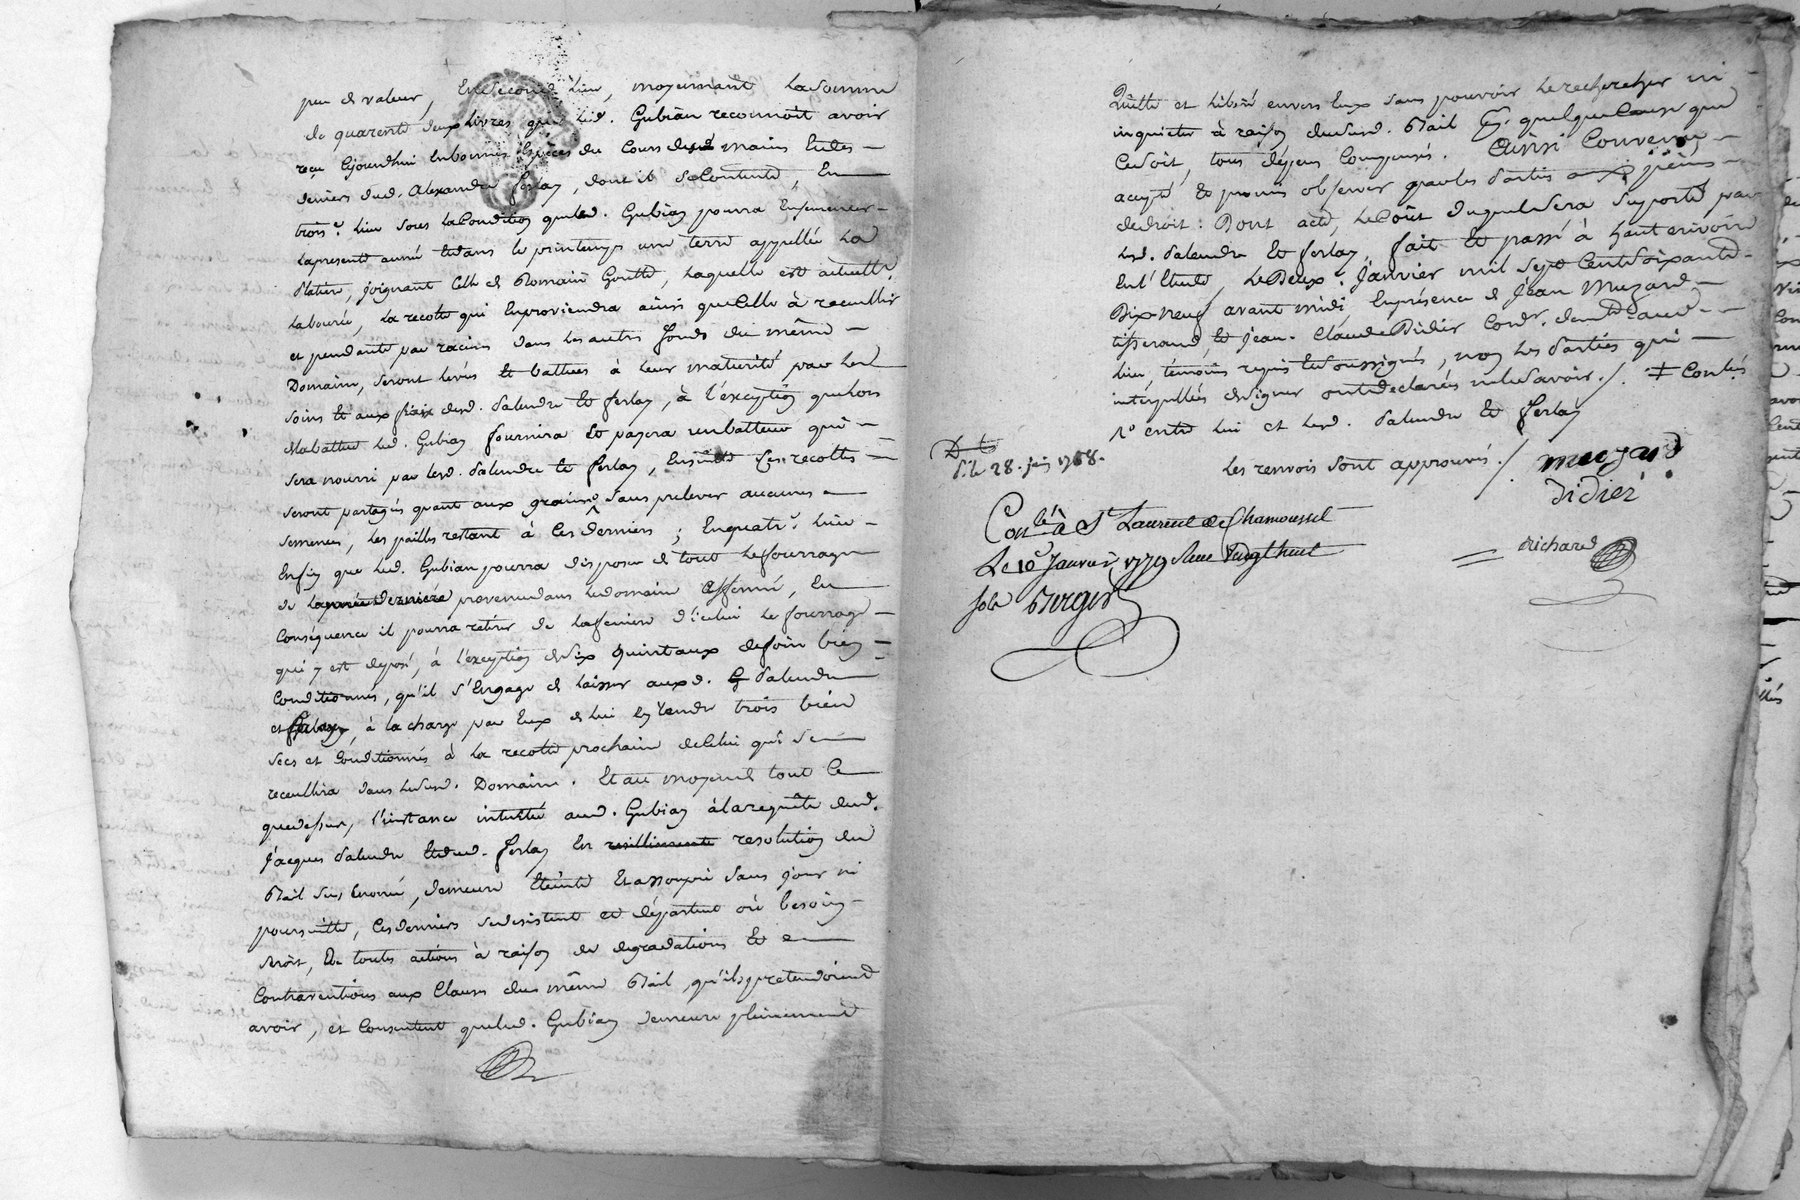 peu de valeur, En Second lieu, moyennant La Somme
de quarente deux Livres que led. Gubian reconnoît avoir
reçu Ejourdhui Enbonnes Espèces du Cours des mains Et des
deniers dud. Alexandre ferlay, dont il se Contente, En
trois.e lieu sous la Condition queled. Gubian pourra Ensemencer
la presente année Et dans le printemps une terre appellée La
Platiere, joignant Celle de Romain Goutte, laquelle est actuelle.t
Labourée, La recolte qui Enproviendra ainsi que Celle à recueullir
et pendante par racines dans les autres fonds du même
Domaine, seront levées Et battues à leur maturité, par les
soins Et aux fraix desd. Palandre Et ferlay, à l'exception quelors
Mabattue led. Gubian fournira Et payera unbatteur qui
sera nourri par lesd. Palandre Et ferlay, Ensuite Ces recoltes
seront partagées quant aux grains sans prelever aucunes
semences, les pailles restant à Ces Derniers ; Enquatr.e lieu
Enfin que led. Gubian pourra disposer de tout lefourrage
de l'année Derniere provenu dans ledomaine affermé, En
Conséquence il pourra retirer de lafeniere d'icelui Le fourrage
qui y est deposé, à l'exception desix quintaux defoin bien
Conditionnés, qu'il s'Engage de laisser auxd. Palandre
et ferlay, à la charge par Eux de lui En rendre trois bien
secs et Conditionnés à la recolte prochaine deCelui qui se
recueullira dans ledud. Domaine. Et au moyen de tout Ce
quedessus, l'instance intentée aud. Gubian à la requête dud.
Jacques Palandre Etdud. ferlay En resolution du
Bail sus Enoncé, demeure Eteinte Et assoupie sans jour ni
poursuitte, Cesderniers sedesistent et départent où besoin
seroit, De toutes actions à raison de degradations Et
Contraventions aux Clauses du même Bail, qu'ils pretendoient
avoir, et Consentent queled. Gubian demeure pleinement
Quitte et liberé envers Eux sans pouvoir Le rechercher ni
inquieter à raison dudusd. Bail Pr. quelque Cause que
Cesoit, tous dépens Compensés. Ainsi Convenu
accepté Et promis observer par les Parties aux peines
dedroit : Dont acte, Le Coût duquel sera suporté par
lesd. Palandre Et ferlay. fait Et passé à hauterivoire
En l'Etude, Le Deux Janvier mil sept Centsoixante
Dix-neuf avant midi, Enprésence de Jean Muzard
tisserand, Et Jean-Claude Didier Cord.r dem.t aud.
lieu, témoins requis Et soussignés, non les Parties qui
interpellées designer ontdeclarées nele savoir./. ≠ Conlés
p.r entre lui et lesd. Palandre Et ferlay
Les renvois sont approuvés./. muzard
didier
richard
D. t.
De 28. jan 1768.
Conlé à St Laurent de Chamousset
Le 10 Janvier 1779 Reçu Vingt huit
sols Berger